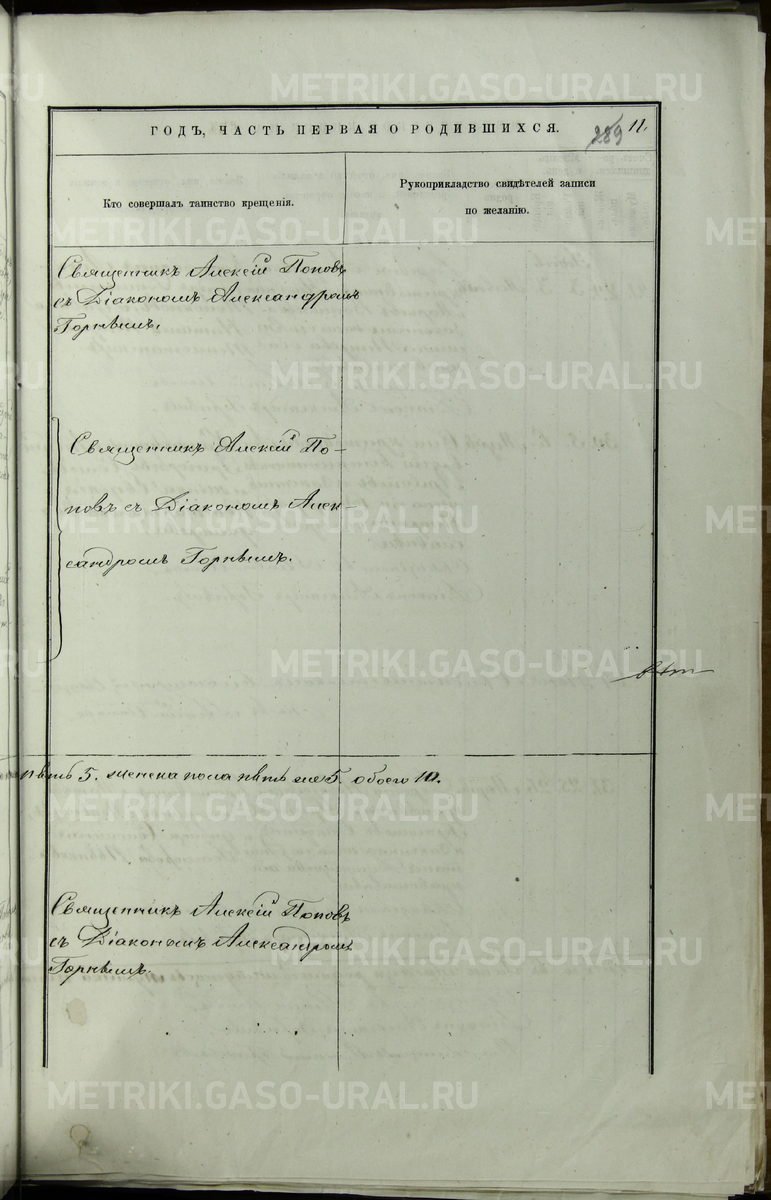 METRIKI.GASO-URAL.RU
ГОДЪ, ЧАСТЬ ПЕРВАЯ О РОДИВШИХСЯ.
289 11.
Кто совершалъ таинство крещенія.
Рукоприкладство свидѣтелей записи
по желанію.
Священникъ Алексій Поповъ
съ Діакономъ Александромъ
Горнымъ.
Священникъ Алексій По-
повъ съ Діакономъ Алек-
сандромъ Горнымъ.
5. женска пола пять 5. обоего 10.
Священникъ Алексій Поповъ
съ Діакономъ Александромъ
Горнымъ.
METRIKI.GASO-URAL.RU